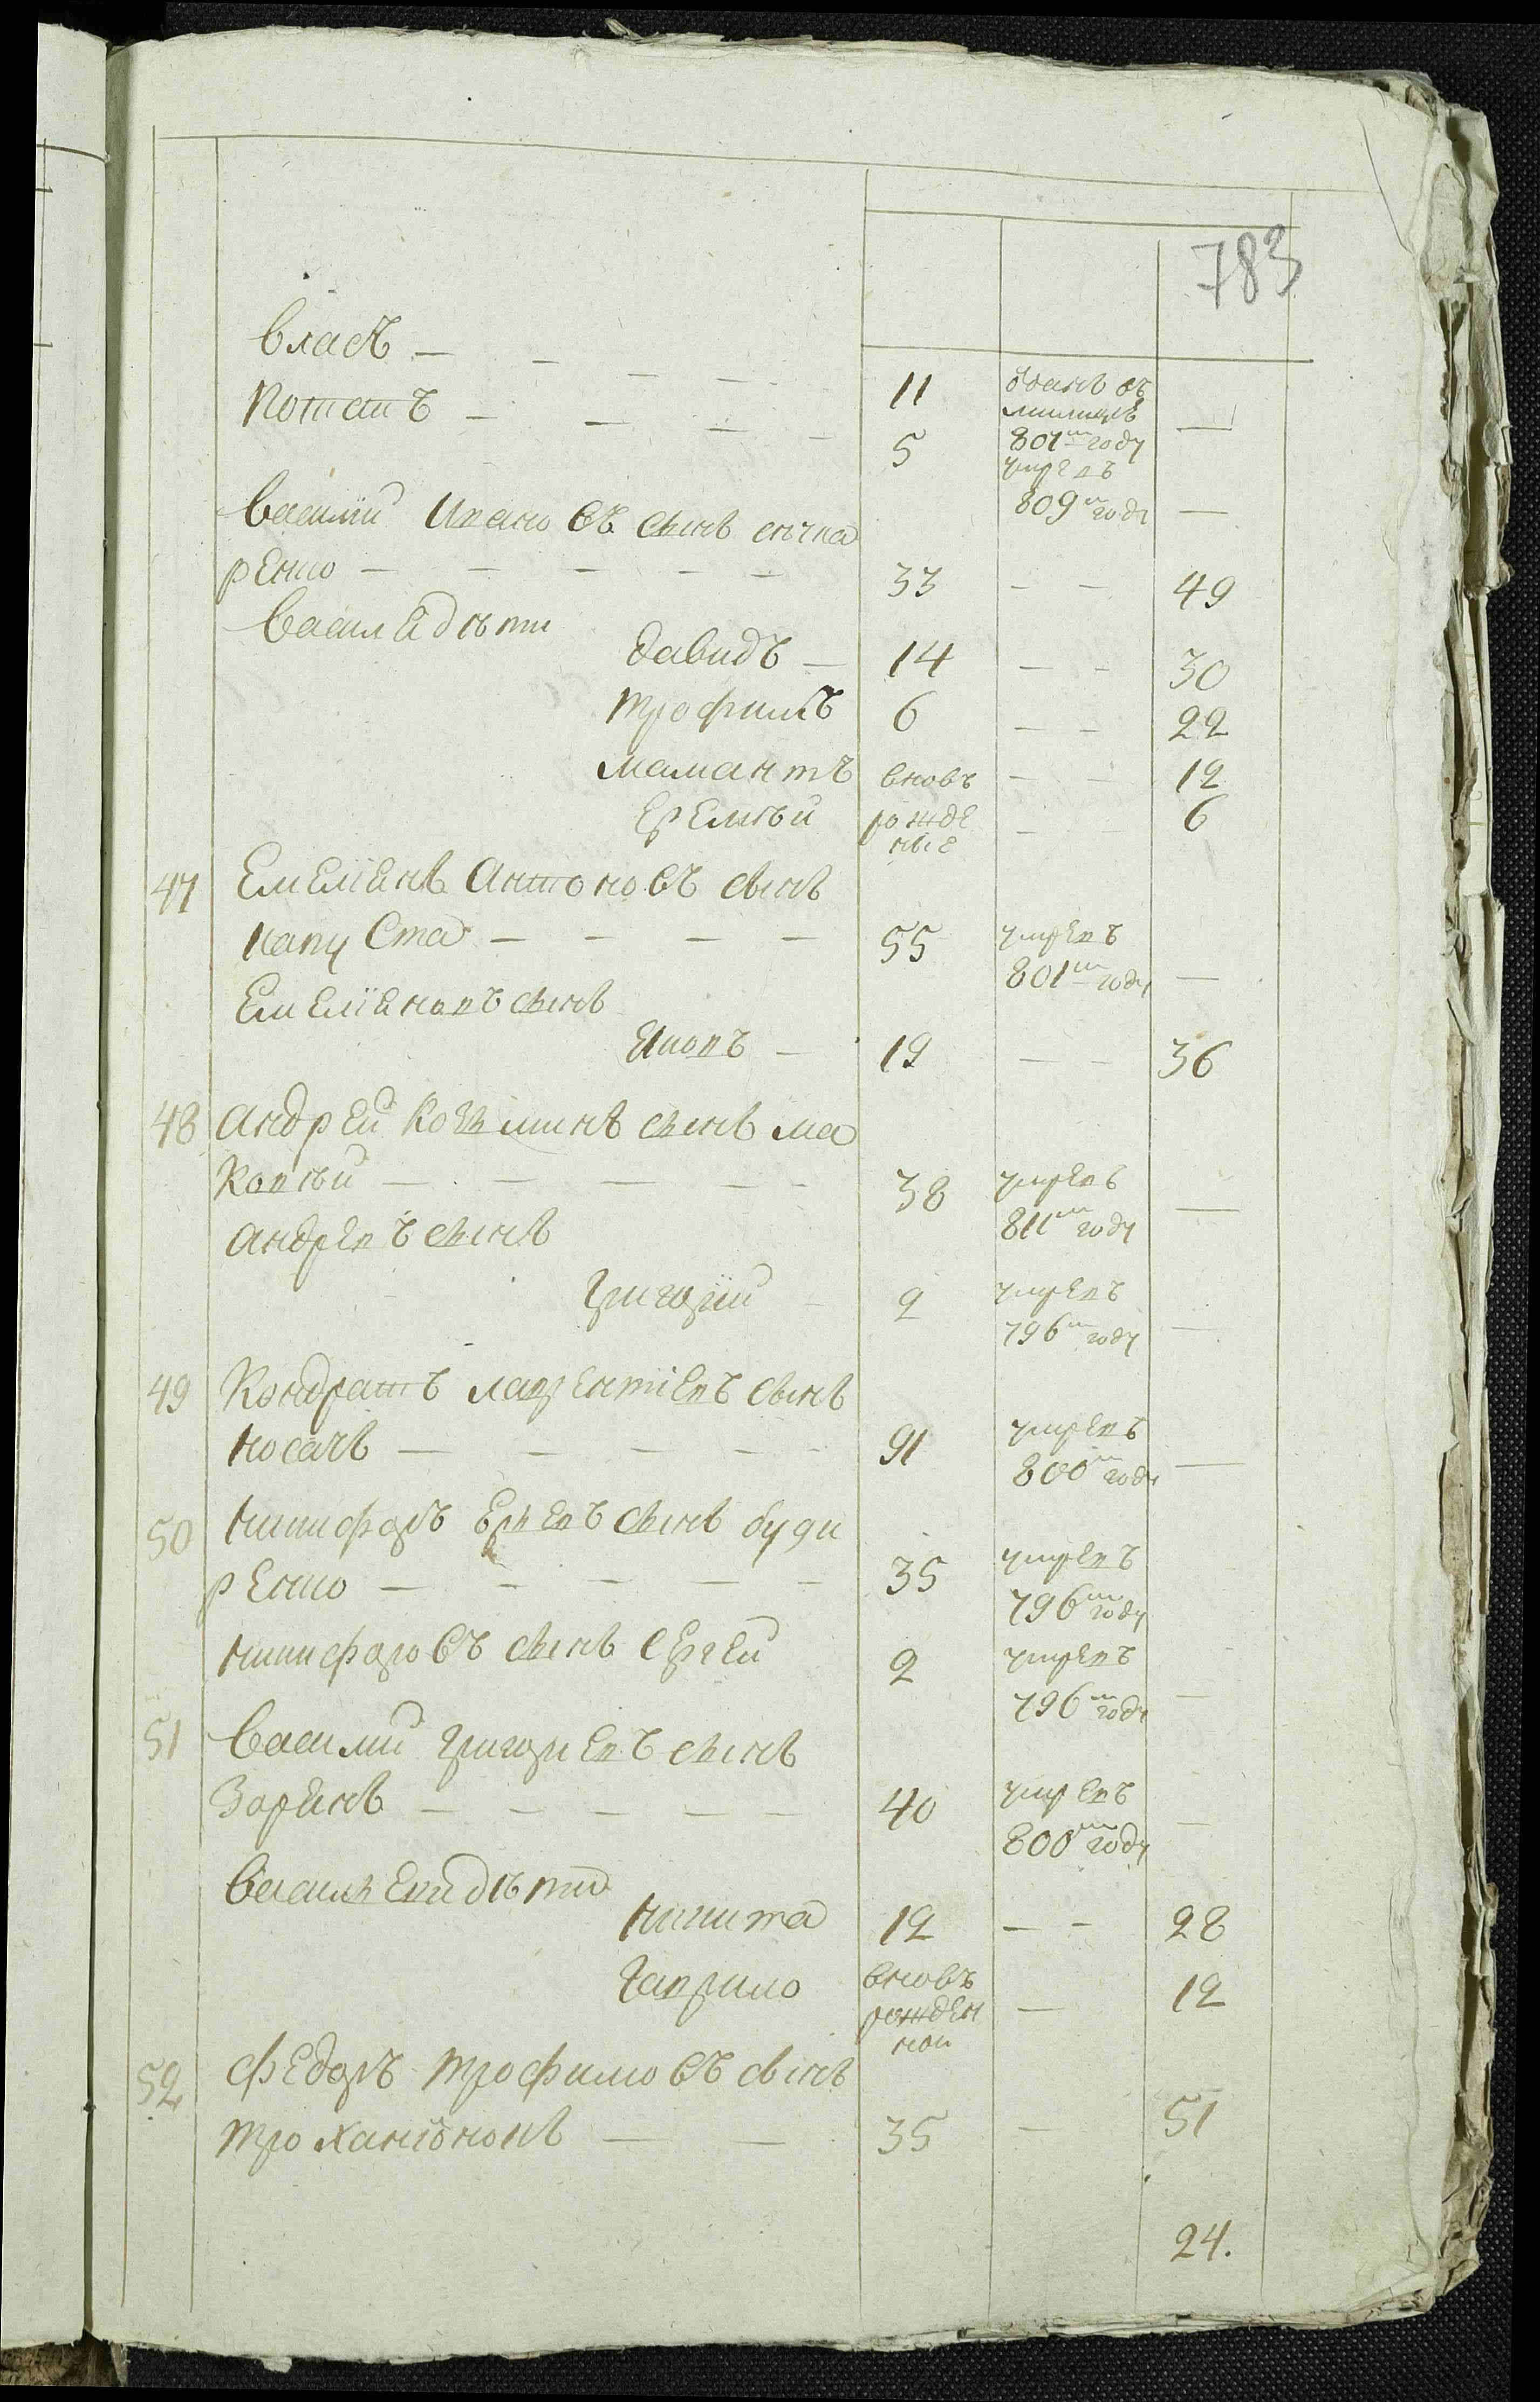 783
Власъ — — — — 11 отанъ въ
милицїю
801го году —
Потапъ — — — — 5 умре въ
809м году —
Василий Ивановъ сынъ сѣчка
ренко — — — — — 33 — — 49
Василя дѣти
Давидъ — 14 — — 30
Трофимъ 6 — — 22
Мамантъ вновь — — 12
Еремѣй рожде — — 6
ные
47 Емелїанъ Антоновъ сынъ
капуста — — — — 55 умре въ
801м году —
Емелїановъ сынъ
Яковъ — 19 — — 36
48 Андрей Козминъ сынъ ма
ковѣй — — — — — 38 умре въ
811м году —
Андреевъ сынъ
Григорїй — 2 умре въ
796м году —
49 Кондратъ Лаврентїевъ сынъ
носачъ — — — — — 91 умре въ
800м году —
50 Никифоръ сынъ
ренко — — — — — 35 умре въ
796м году
Никифоровъ сынъ Сергей 2 умре въ
796м году —
51 Василий Григориевъ сынъ
— — — — — 40 умре въ
800м году —
Васильеви дѣти
Никита 12 — — 28
Гаврило вновь — 12
рожден
ной
52 Федоръ Трофимовъ сынъ
— — 35 — 51
24.